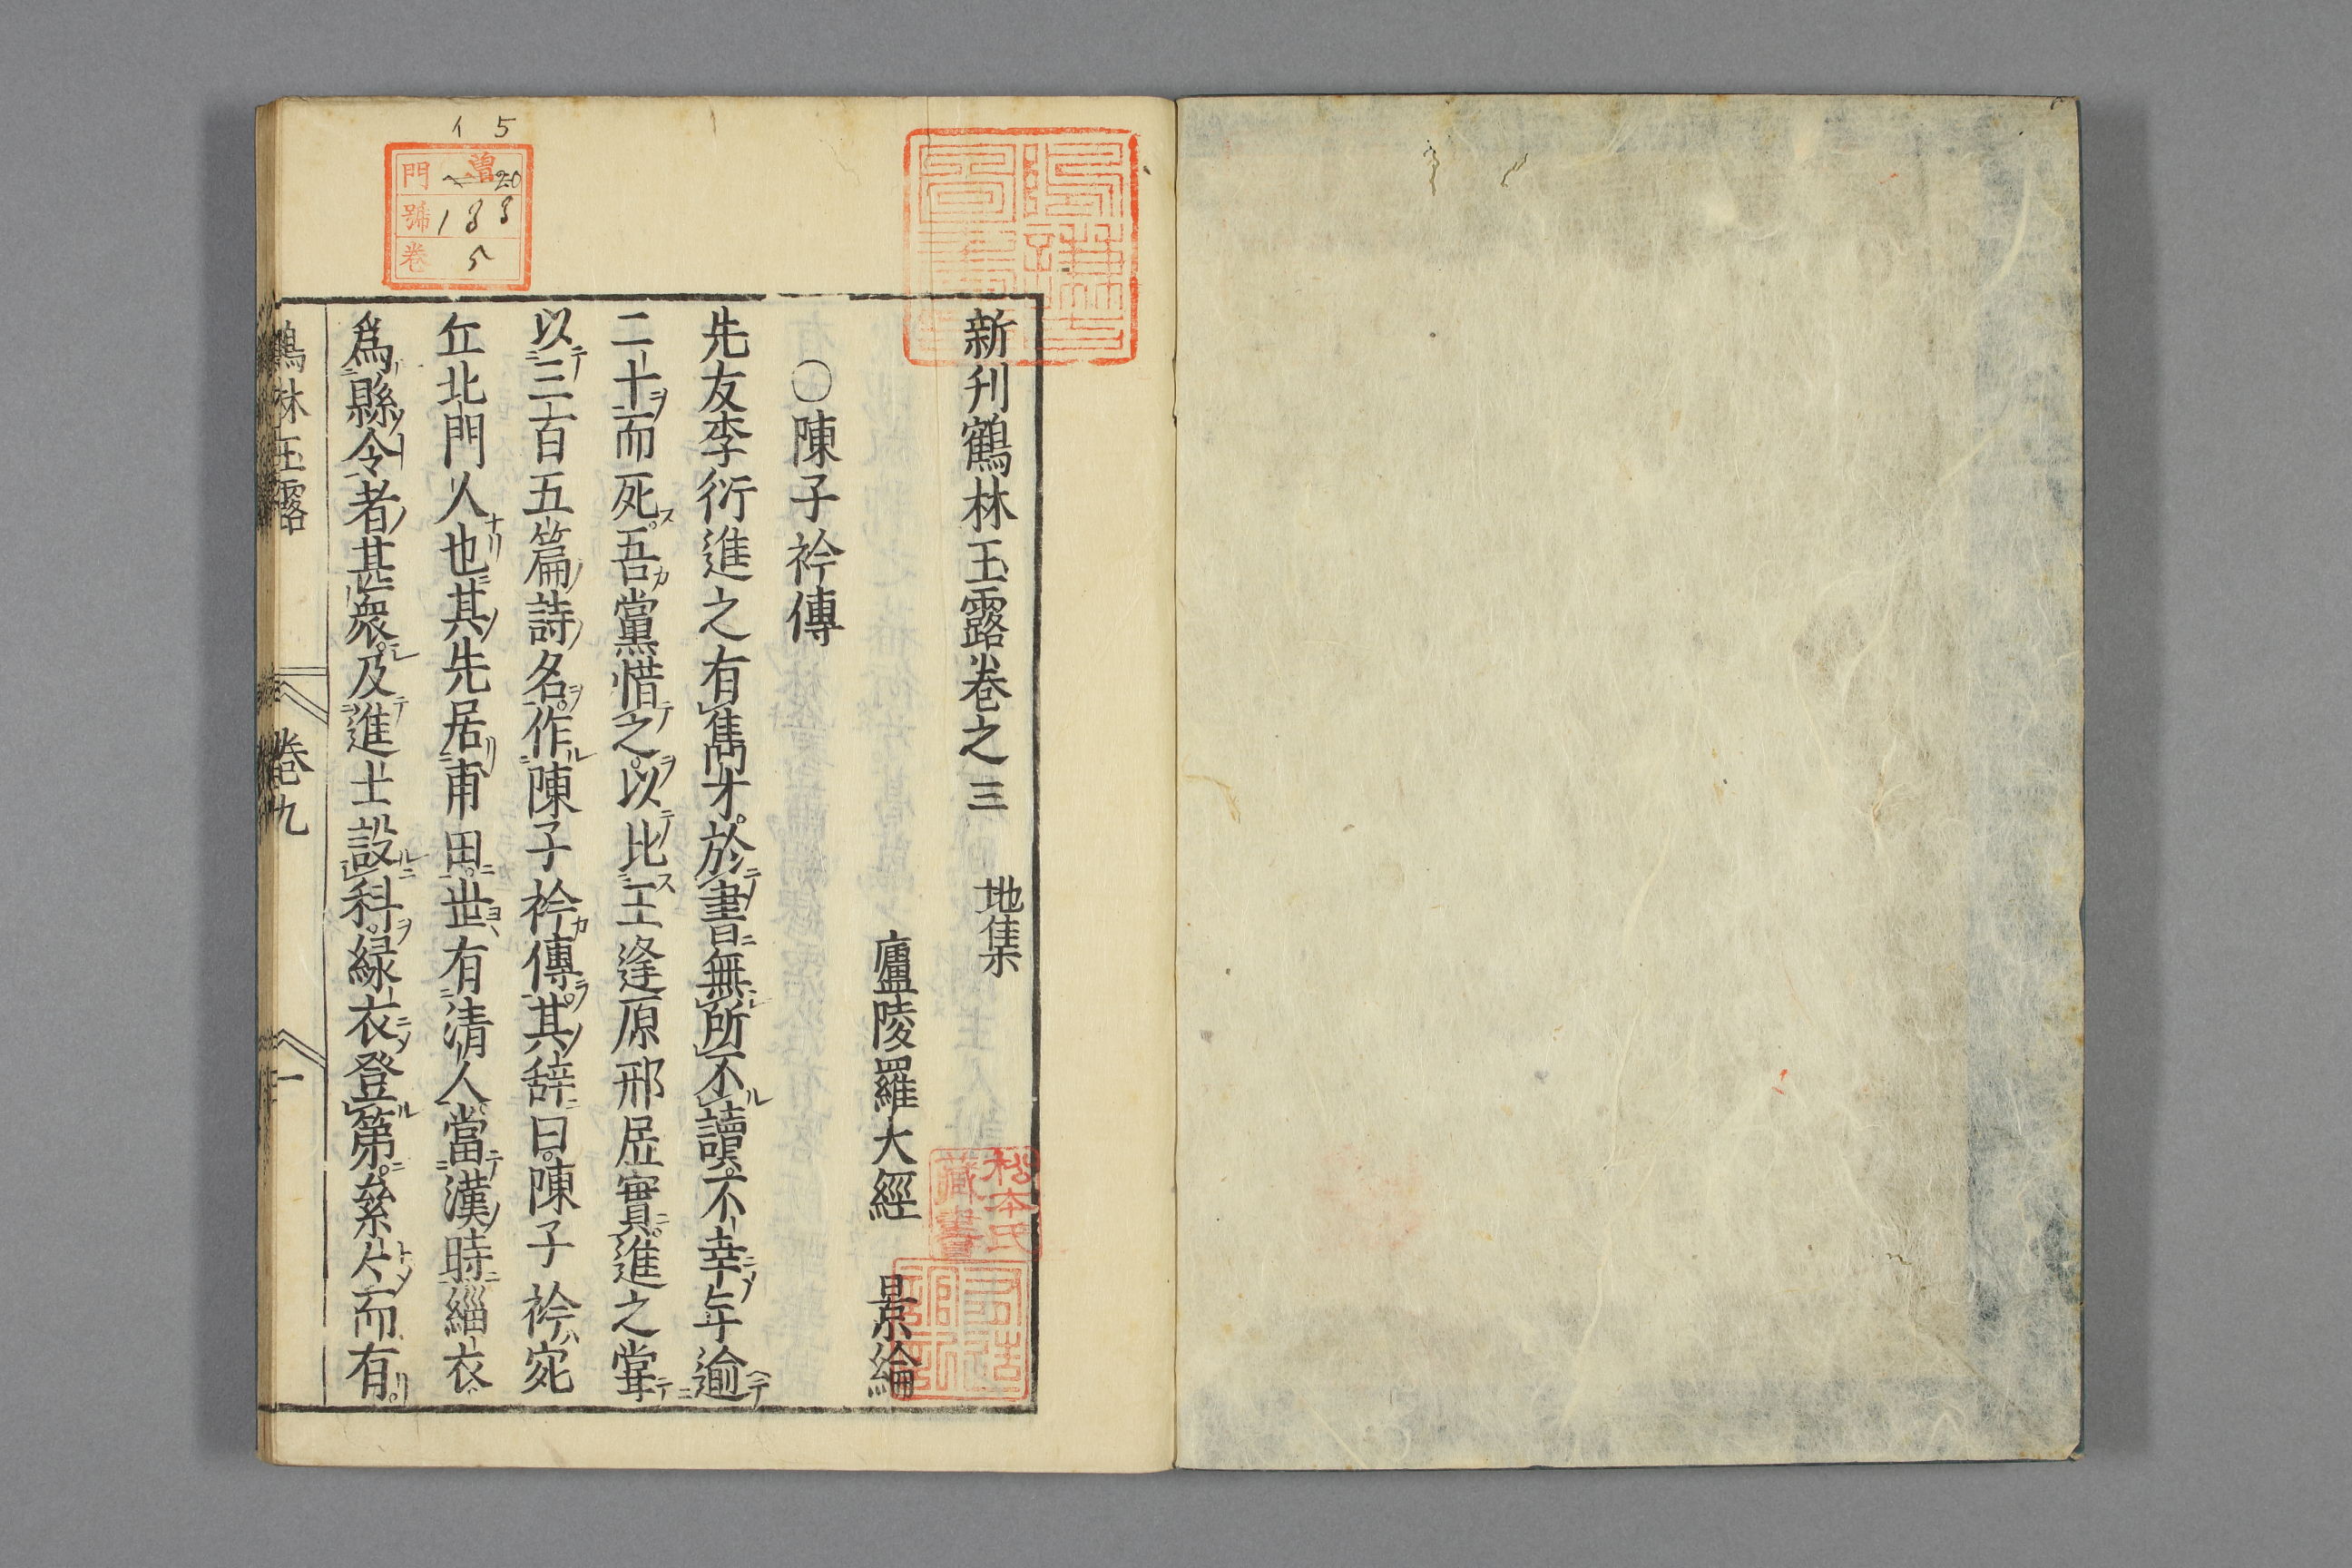 新刊鶴林玉露卷之三 地集
廬陵羅大經 景綸
○陳子衿傳
先友李衍進之有雋才於書無所不讀不幸年逾
二十而死吾黨惜之以比王逢原邢居實進之嘗
以三百五篇詩名作陳子衿傳其辞曰陳子衿宛
丘北門人也其先居甫田世有清人當漢時緇衣
爲縣令者甚衆及進士設科緑衣登第叅片而有
鶴林玉露 卷九 一
15
門 曽 20
號 188
卷 5
松本氏
藏書